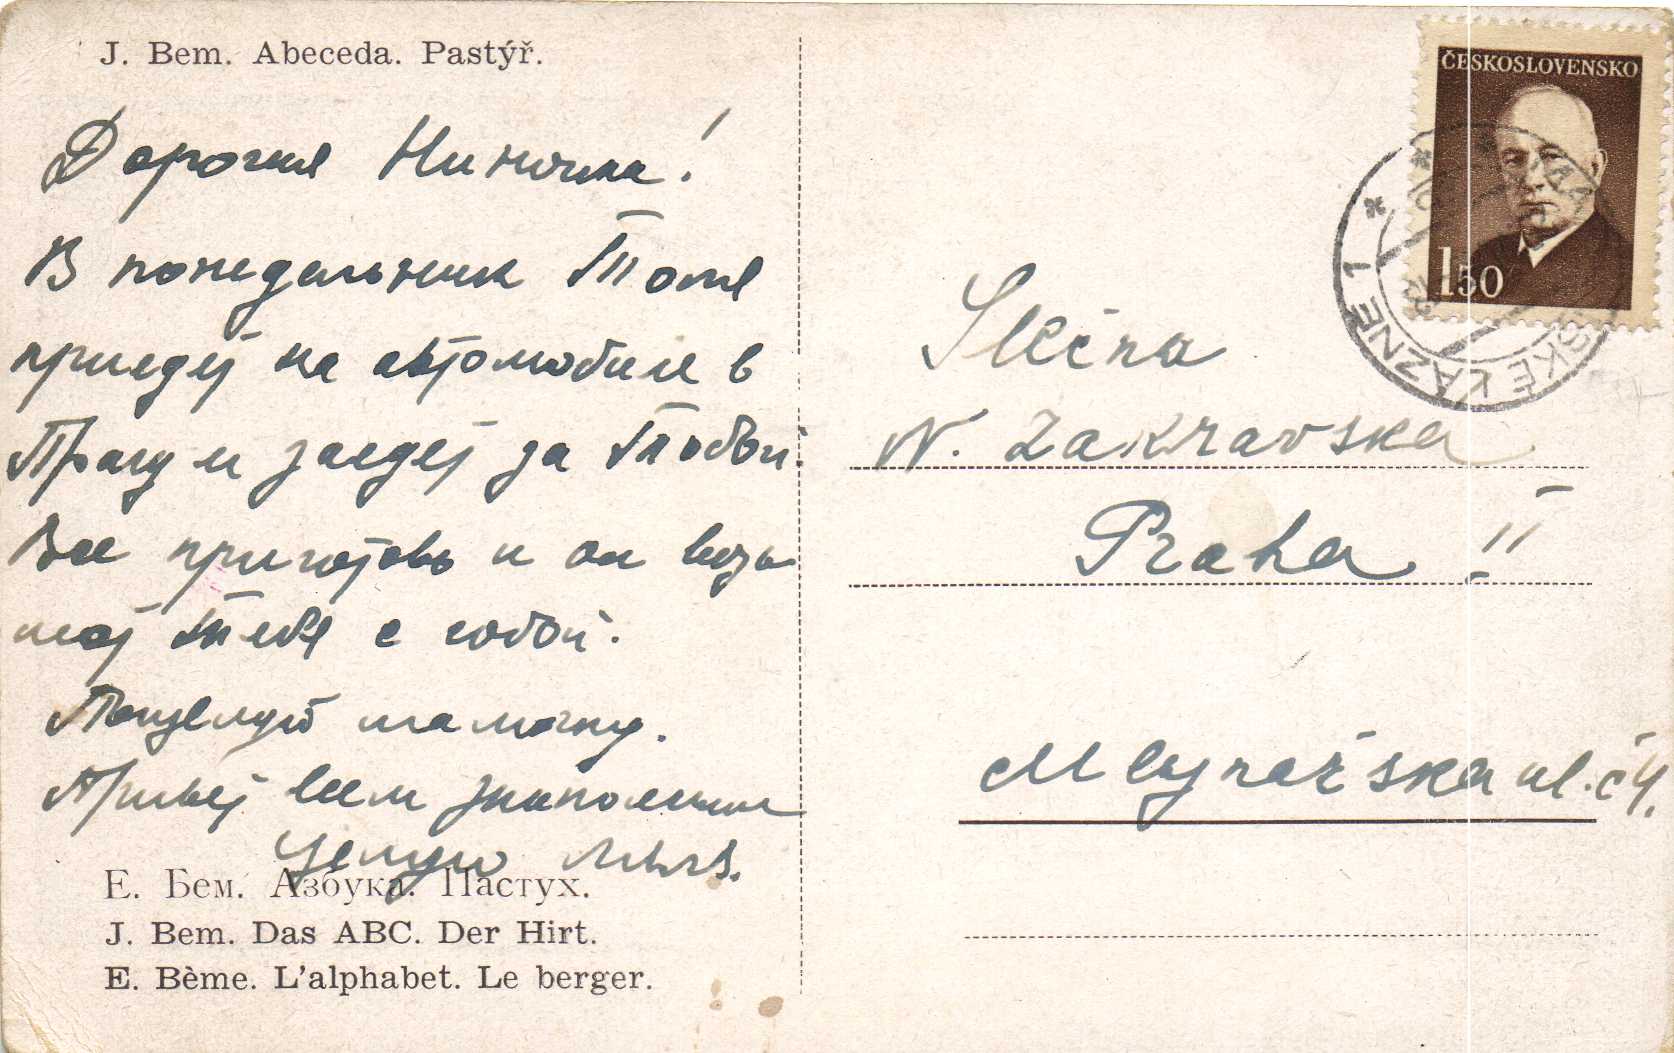 J. Bem. Abeceda. Pastýř.
Дорогая Ниночка!
В понедельник Толя
приедет на автомобиле в
Прагу и заедет за Тобой.
Все приготовь и он возь
мет Тебя с собой.
Поцелуй мамочку.
Привет всем знакомым
Целую
Е. Бем. Азбука. Пастух.
J. Bem. Das ABC. Der Hirt.
E. Bème. L'alphabet. Le berger.
ČESKOSLOVENSKO
1 50
SKÉ LÁZNĚ 1
Slečna
N. Zakravska
Praha II
Mlynařska ul. č 4.